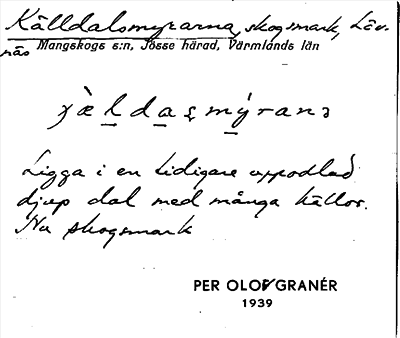 Källdalsmyrarna, skogsmark, Löv-
näs Mangskogs s:n, Jösse härad, Värmlands län
Ligga i en tidigare uppodlad
djup dal med många källor.
Nu skogsmark
PER OLOF GRANÉR
1939